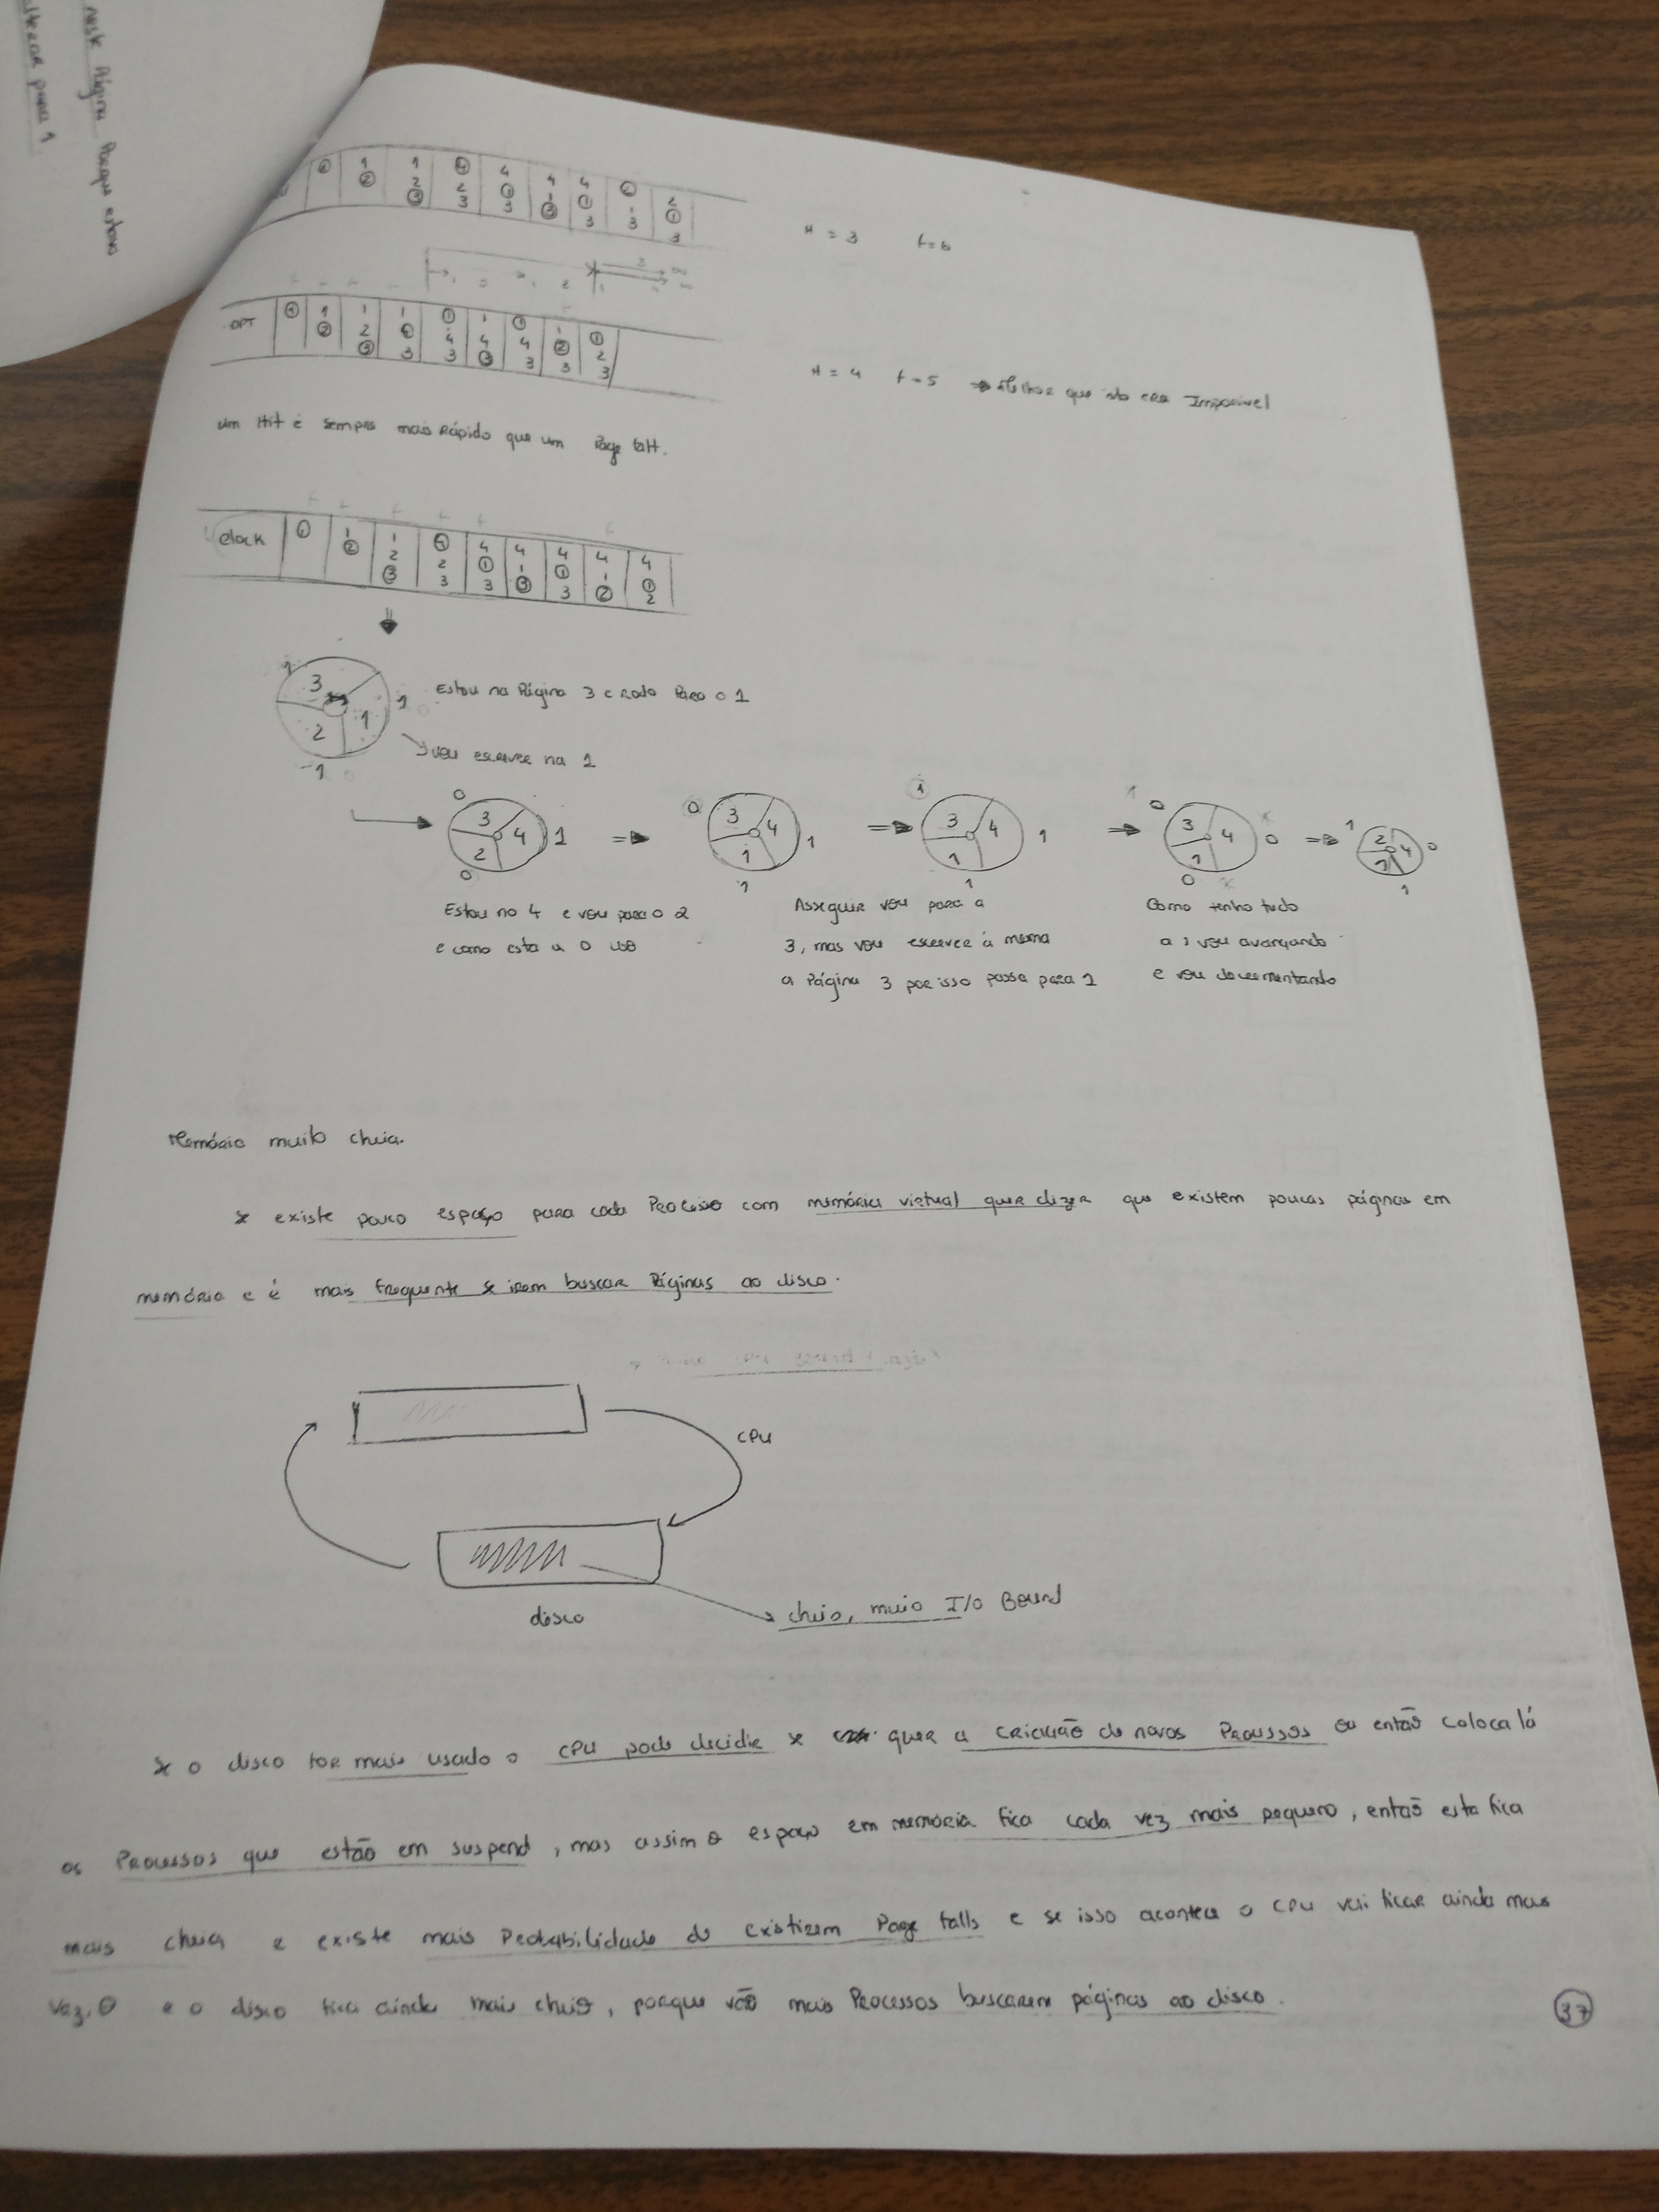 neste Página Porque estava
alterar para 1
1 1 ④ 4 4 4 2
② 2 2 ① 1 ① 1 ①
③ 3 3 ③ 3 3 3
H = 3 f=6
OPT ① 1 1 1 ① 1 ① 1 ①
② 2 ④ 4 4 4 ② 2
③ 3 3 ③ 3 3 3
H = 4 f=5 → Melhor que isto era Impossivel
um Hit é sempre mais Rápido que um Page falt.
Clock ① 1 1 ④ 4 4 4 4 4
② 2 2 ① 1 ① 1 ①
③ 3 3 ③ 3 ② 2
1 3 1 1 2 1
Estou na Página 3 e rodo Para o 1
vou escrever na 1
0 3 4 1 2 0
0 3 4 1 1 1
1 3 4 1 1 1
0 3 4 0 1 0
1 2 4 0 1 1
Estou no 4 e vou para o 2
e como esta a 0 uso
Asseguir vou para a
3, mas vou escrever á mesma
a Página 3 por isso passa para 1
Como tenho tudo
a 1 vou avançando
e vou decrementando
Memória muito cheia.
se existe pouco espaço para cada Processo com memória virtual quer dizer que existem poucas páginas em
memória e é mais frequente se irem buscar Páginas ao disco.
CPU
disco
cheio, muio I/O Bound
se o disco for mais usado o CPU pode decidir se quer a criação de novos Processos ou então coloca lá
os Processos que estão em suspend, mas assim o espaço em memória fica cada vez mais pequeno, então esta fica
mais cheia e existe mais Probabilidade de existirem Page falls e se isso acontece o CPU vai ficar ainda mais
Vazio e o disco fica ainda mais cheio, porque vão mais Processos buscarem páginas ao disco.
37